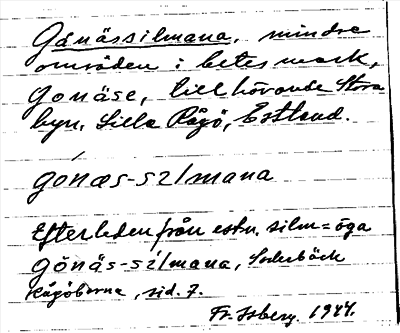 Gönässilmana, mindre
områden i betesmark,
Gonäse, tillhörande Stora
byn, Lilla Rågö, Estland.
gónæs-sìlmana
Efterleden från estn. silm = öga
Gönäs-sílmana, Söderbäck
Rågöborna, sid. 7.
Fr. Isberg 1944.